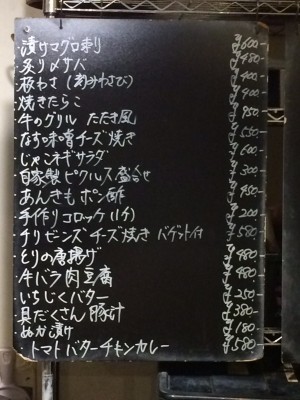 ・漬サマグロ刺 ¥600-
・炙り〆サバ ¥480-
・板わさ(刻みわさび) ¥400-
・焼きたらこ ¥400-
・牛のグリル たたき風 ¥950-
・なす味噌チーズ焼き ¥550-
・じゃこネギサラダ ¥600-
・自家製ピクルス盛合せ ¥300-
・あんきもポン酢 ¥450-
・手作りコロッケ(1ケ) ¥200-
・チリビーンズチーズ焼き バゲット付 ¥580-
・とりの唐揚げ ¥480-
・牛バラ肉豆腐 ¥480-
・いちじくバター ¥250-
・具だくさん豚汁 ¥380-
・ぬか漬け ¥180-
・トマトバターチキンカレー ¥580-